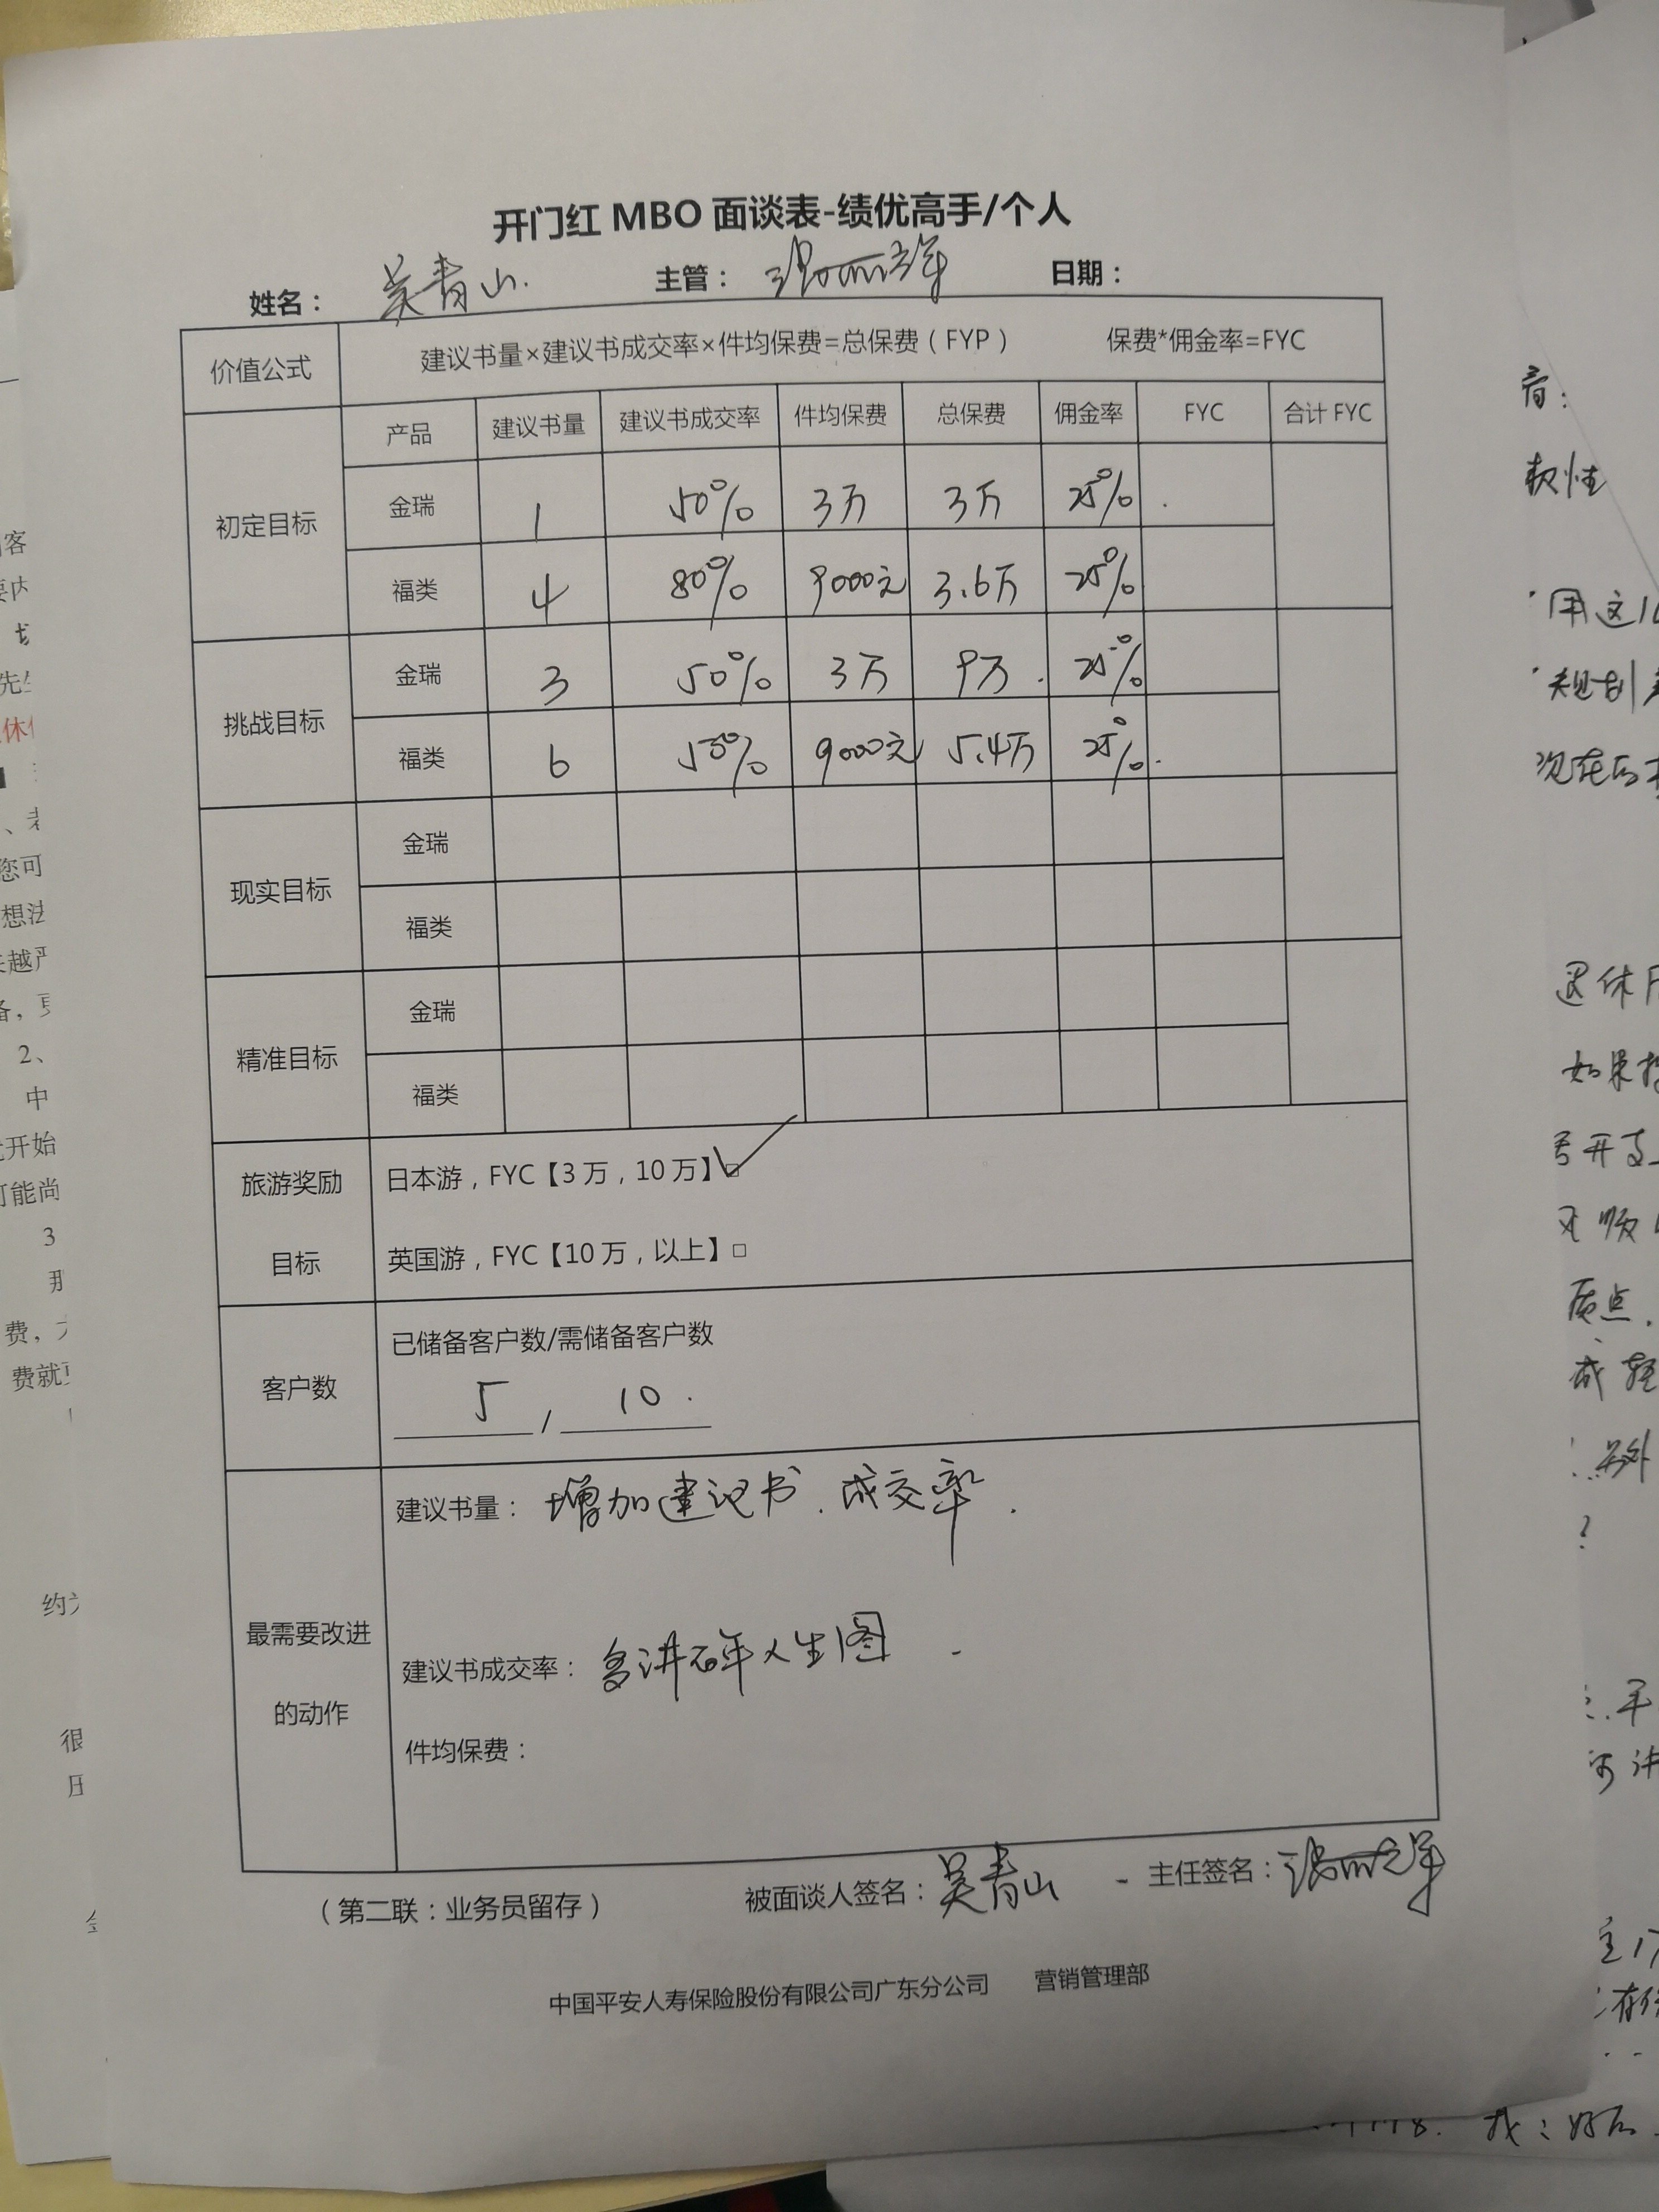 开门红 MBO 面谈表-绩优高手/个人
姓名： 吴青山. 主管： 日期：
价值公式 建议书量×建议书成交率×件均保费=总保费（FYP） 保费*佣金率=FYC
初定目标 产品 建议书量 建议书成交率 件均保费 总保费 佣金率 FYC 合计 FYC
金瑞 1 50% 3万 3万 25%
福类 4 80% 9000元 3.6万 25%
挑战目标 金瑞 3 50% 3万 9万 25%
福类 6 50% 9000元 5.4万 25%
现实目标 金瑞
福类
精准目标 金瑞
福类
旅游奖励 日本游，FYC【3 万，10 万】□
目标 英国游，FYC【10 万，以上】□
客户数 已储备客户数/需储备客户数
5 / 10
最需要改进 建议书量： 增加建议书.成交率.
的动作 建议书成交率： 多讲百年人生图
件均保费：
（第二联：业务员留存） 被面谈人签名：吴青山 主任签名：
中国平安人寿保险股份有限公司广东分公司 营销管理部
软性
用这
规划
退休
如果
开支
质点.
另外
?
客
先生
休
您可
想法
越严
2、
中
开始
可能尚
3
那
费，
费就
约
很
压